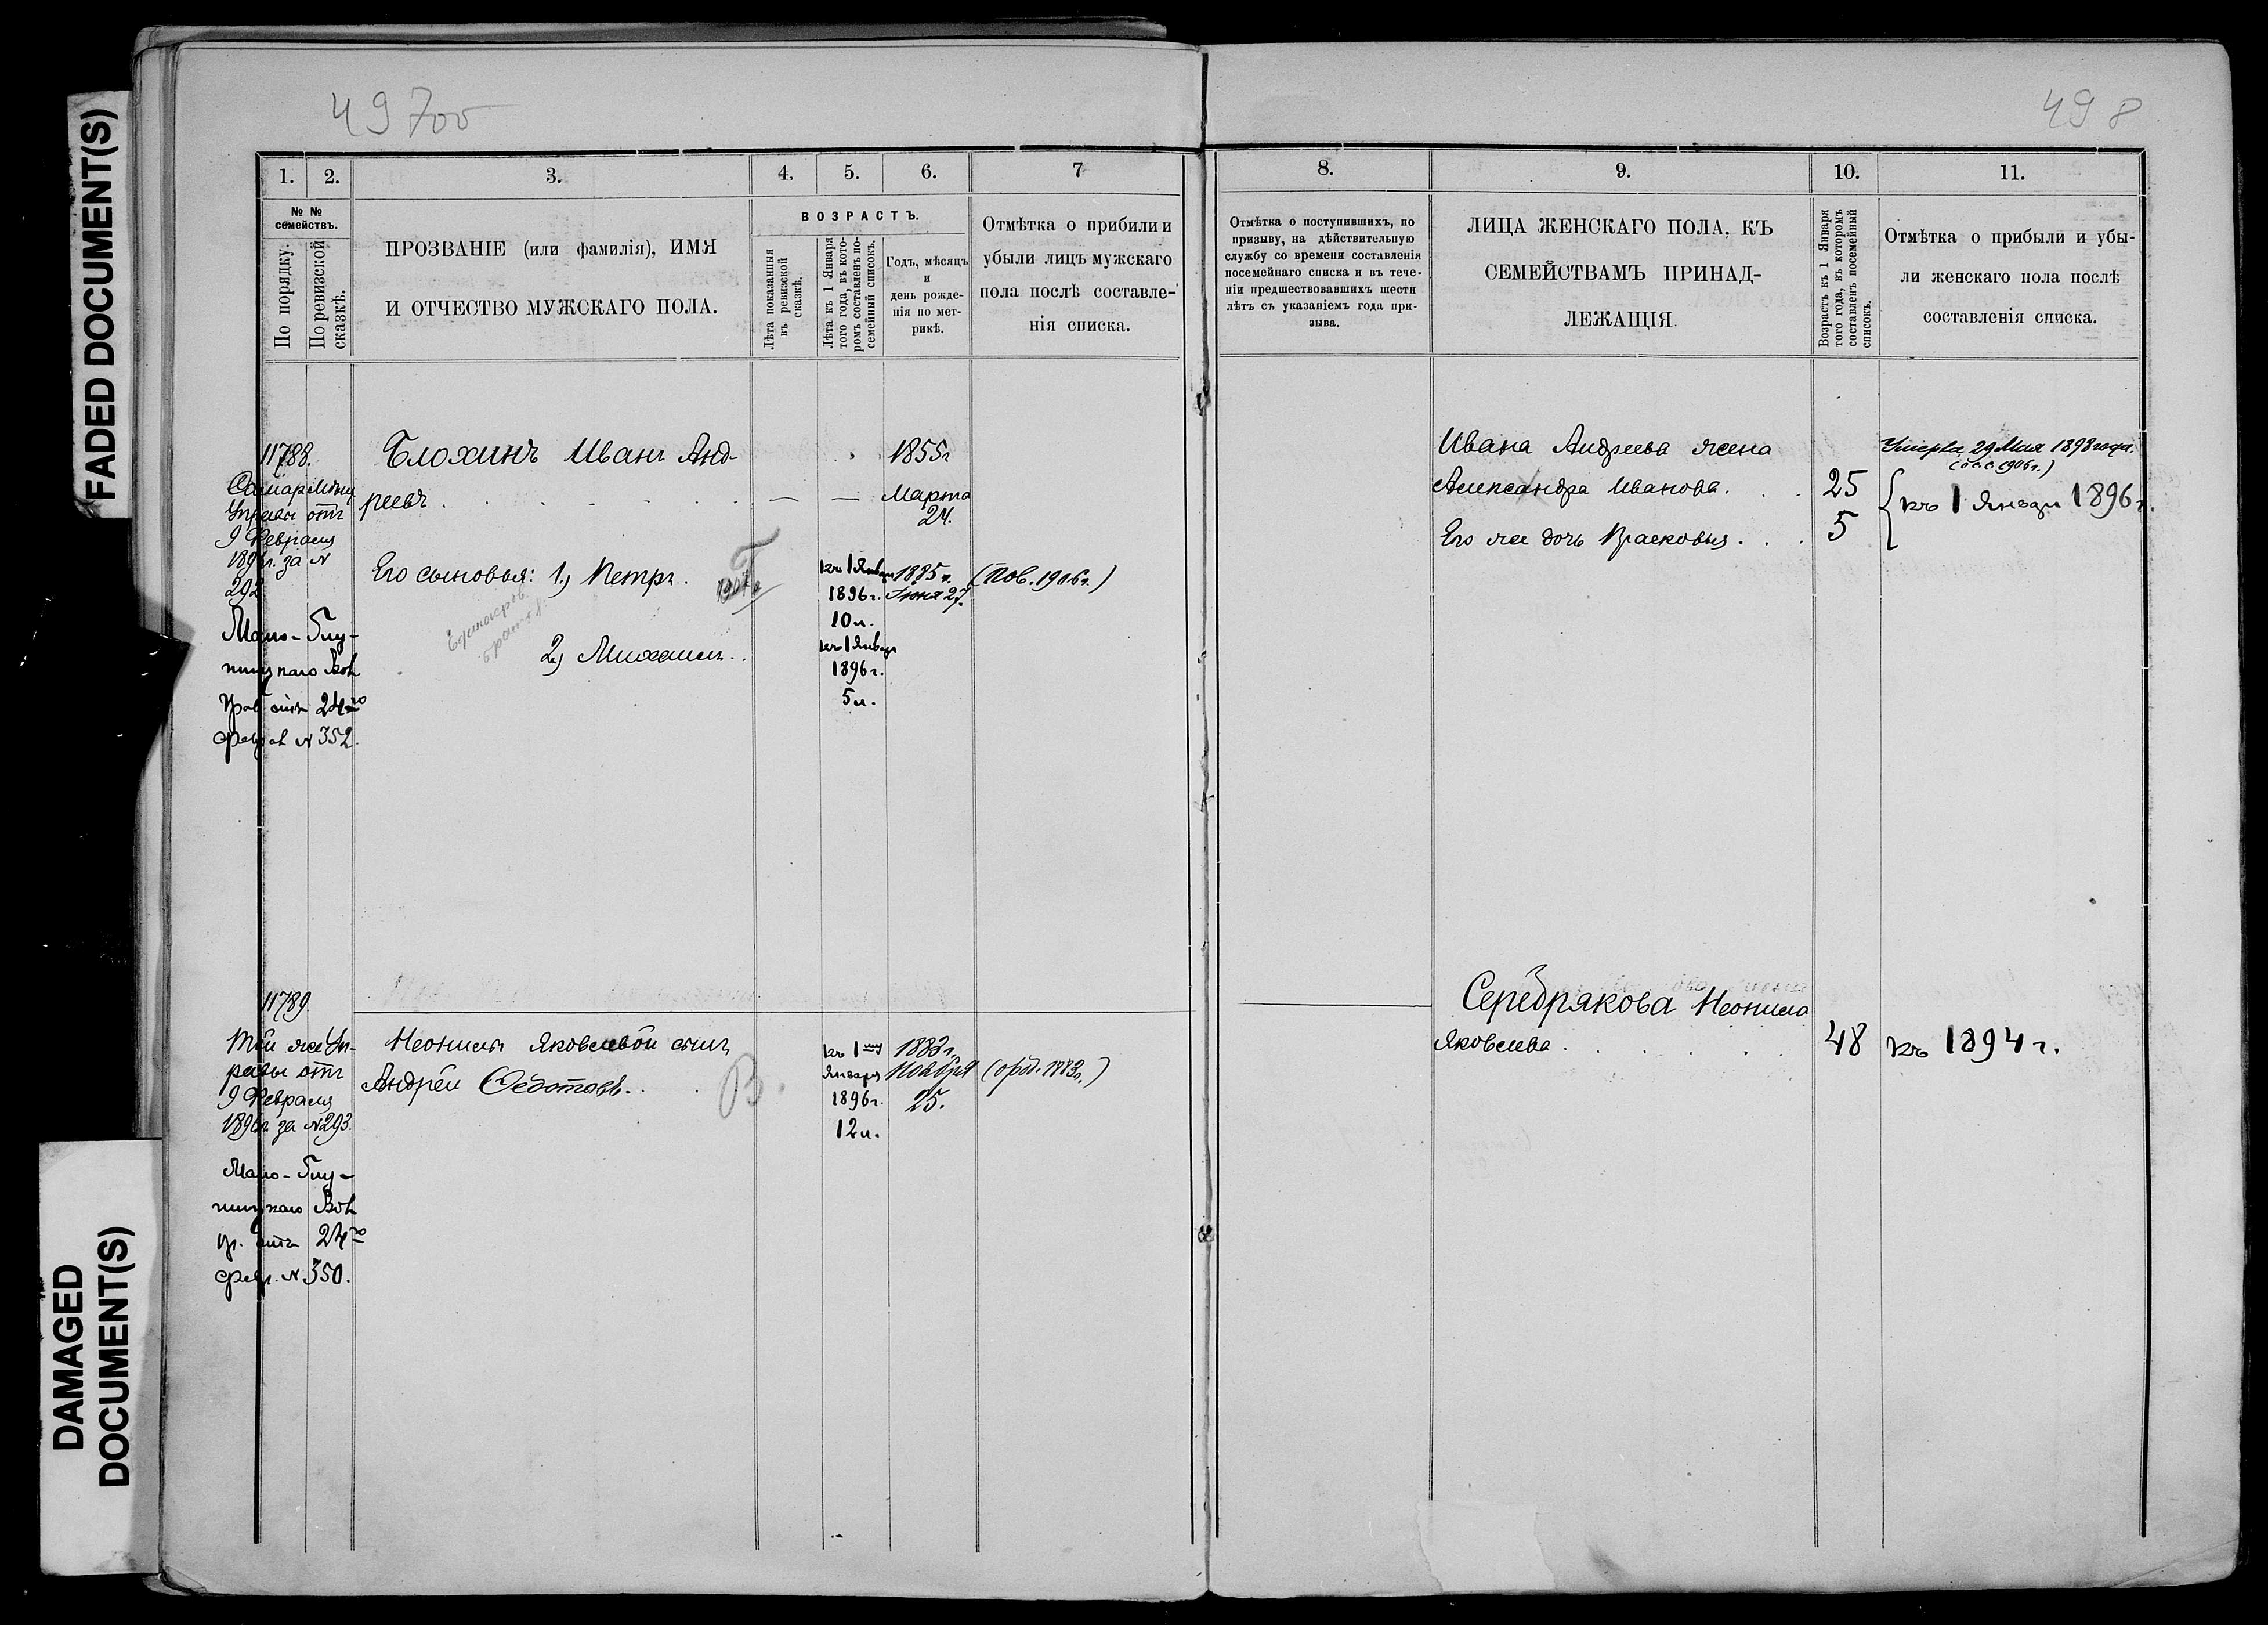 FADED DOCUMENT(S)
DAMAGED
DOCUMENT(S)
497об
498
1. 2. 3. 4. 5. 6. 7
№ №
семействъ.
По порядку.
По ревизской
сказкѣ.
ПРОЗВАНІЕ (или фамилія), ИМЯ
И ОТЧЕСТВО МУЖСКАГО ПОЛА.
ВОЗРАСТЪ.
Лѣта показанныя
въ ревизской
сказкѣ.
Лѣта къ 1 Января
того года, въ кото-
ромъ составленъ по-
семейный списокъ.
Годъ, мѣсяцъ
и
день рожде-
нія по мет-
рикѣ.
Отмѣтка о прибили и
убыли лицъ мужскаго
пола послѣ составле-
нія списка.
11788.
Самар Мѣщ
Управы отъ
9 Февраля
1896г. за №
292
Мало-Глу-
шицкаго Вол
Прав отъ 24го
февр. № 352.
Блохинъ Иванъ Анд-
реевъ . . . . . — —
1855г
Марта
24.
Его сыновья: 1.) Петръ.
къ 1 Января
1896г.
10 л.
1885 г.
Іюня 27.
(Пов. 1906г.)
2) Михаилъ..
къ 1 Января
1896г.
5 л.
11789.
Той же Уп-
равы отъ
9 Февраля
1896г. за №293.
Мало-Глу-
шицкаго Вол
пр. отъ 24го
февр. № 350.
Неонилы Яковлевой сынъ
Андрей Ѳедотовъ. .
В.
къ 1му
Января
1896г.
12 л.
1883 г.
Ноября
25.
8. 9. 10. 11.
Отмѣтка о поступившихъ, по
призыву, на дѣйствительную
службу со времени составленія
посемейнаго списка и въ тече-
ніи предшествовавшихъ шести
лѣтъ съ указаніемъ года при-
зыва.
ЛИЦА ЖЕНСКАГО ПОЛА, КЪ
СЕМЕЙСТВАМЪ ПРИНАД-
ЛЕЖАЩІЯ.
Возрастъ къ 1 Января
того года, въ которомъ
составленъ посемейный
списокъ.
Отмѣтка о прибыли и убы-
ли женскаго пола послѣ
составленія списка.
Ивана Андреева жена
Александра Иванова. . . 25
Его же дочь Прасковья. . . 5
Умерла 29 Мая 1898 года.
къ 1 Января 1896 г.
Серебрякова Неонила
Яковлева . . . . . 48 къ 1894 г.